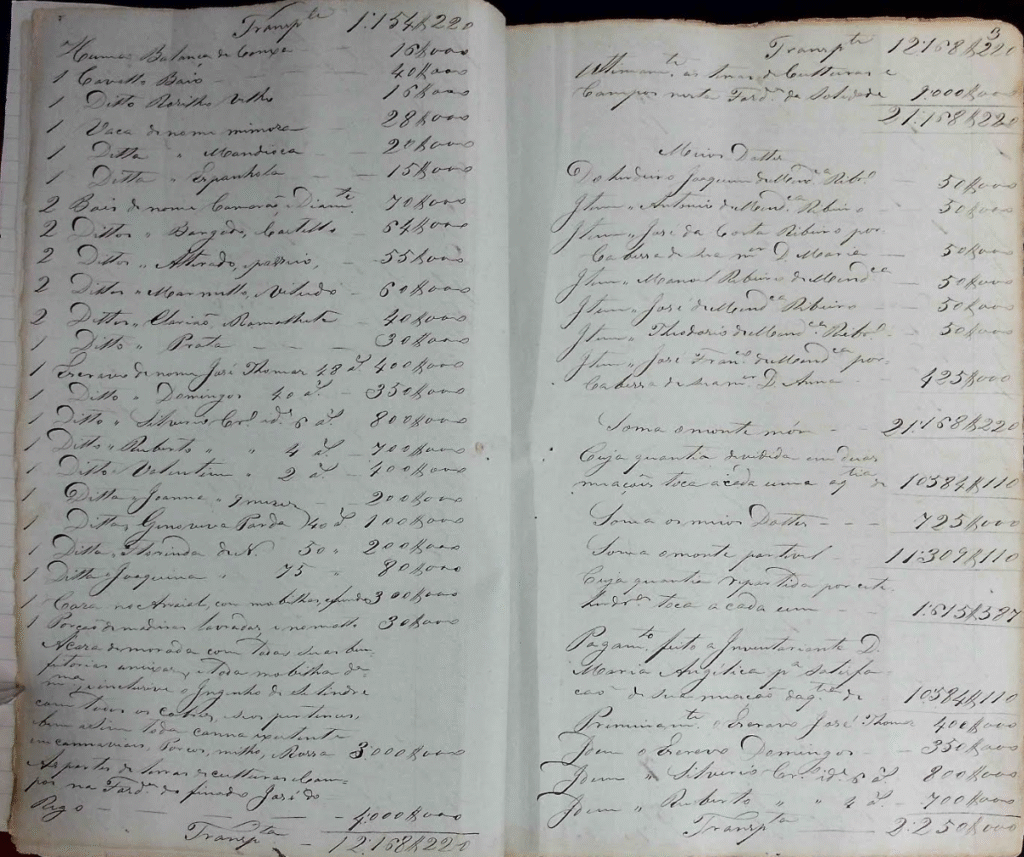 Transpte 1:154$220
Huma Balança de Conxa 16$000
1 Cavallo Baio 40$000
1 Ditto Rosilho Velho 16$000
1 Vaca de nome mimoza 28$000
1 Ditta " Mandioca 20$000
1 Ditta " Espanhola 15$000
2 Bois de nome Diamte 70$000
2 Dittos " Castello 64$000
2 Dittos " 55$000
2 Dittos " 60$000
2 Dittos " Ramalhete 40$000
1 Ditto " Prata 30$000
1 Escravo de nome José Thomaz 48 as. 400$000
1 Ditto " Domingos 40 as. 350$000
1 Ditto " Silverio Cro. ide. 6 as. 800$000
1 Ditto " Ruberto " " 4 as. 700$000
1 Ditto " Valentim " 2 as. 400$000
1 Ditta " Joanna " 9 mezes 200$000
1 Ditta " Genoveva Parda 40 as. 100$000
1 Ditta " Florinda de N. 50 " 200$000
1 Ditta " Joaquina " 75 " 80$000
1 Caza no Arraial, com mobilhas, 300$000
1 Porção de madeiras lavradas, 30$000
A caza de morada com todas suas bem
feitorias anixas, e toda mobilha da
mma. inclusive o Ingenho de Silindre
com todos os cobres, seos pertences,
bem assim toda canna
em cannaviais, Porcos, milho, Rossa 3:000$000
As partes de terras de culturas e Cam-
pos na Fazda. do finado José do
Rego 4:000$000
Transpte 12:168$220
3
Transpte 12:168$220
Ultimamte. as terras de Culturas e
Campos nesta Fazda. da Soledade 9:000$000
21:168$220
Meios Dottes
Do herdeiro Joaquim de Mendca. Ribro. 50$000
Item " Antonio de Mendca. Ribeiro 50$000
Item " José da Costa Ribeiro por
Cabessa de sua mer. D. Maria 50$000
Item " Manoel Ribeiro de Mendca 50$000
Item " José de Mendca. Ribeiro 50$000
Item " Theodorio de Mendca. Ribro. 50$000
Item " José Franco. de Mendca. por
Cabessa de sua mer. D. Anna 425$000
Soma o monte mór 21:168$220
Cuja quantia devidida em duas
miações, toca a cada uma a qtia de 10584$110
Soma os meios Dottes 725$000
Soma o monte partivel 11:309$110
Cuja quantia repartida por cete
herdros. toca a cada um 1:615$587
Pagamto. feito a Inventariante D.
Maria Angelica pa. satisfa-
ção de sua miação da qtia. de 10584$110
Premeiramte. o Escravo José Thomaz 400$000
Idem o Escravo Domingos 350$000
Idem " Silverio Cro. ide. 6 as. 800$000
Idem " Ruberto " " 4 as. 700$000
Transpte 2:250$000